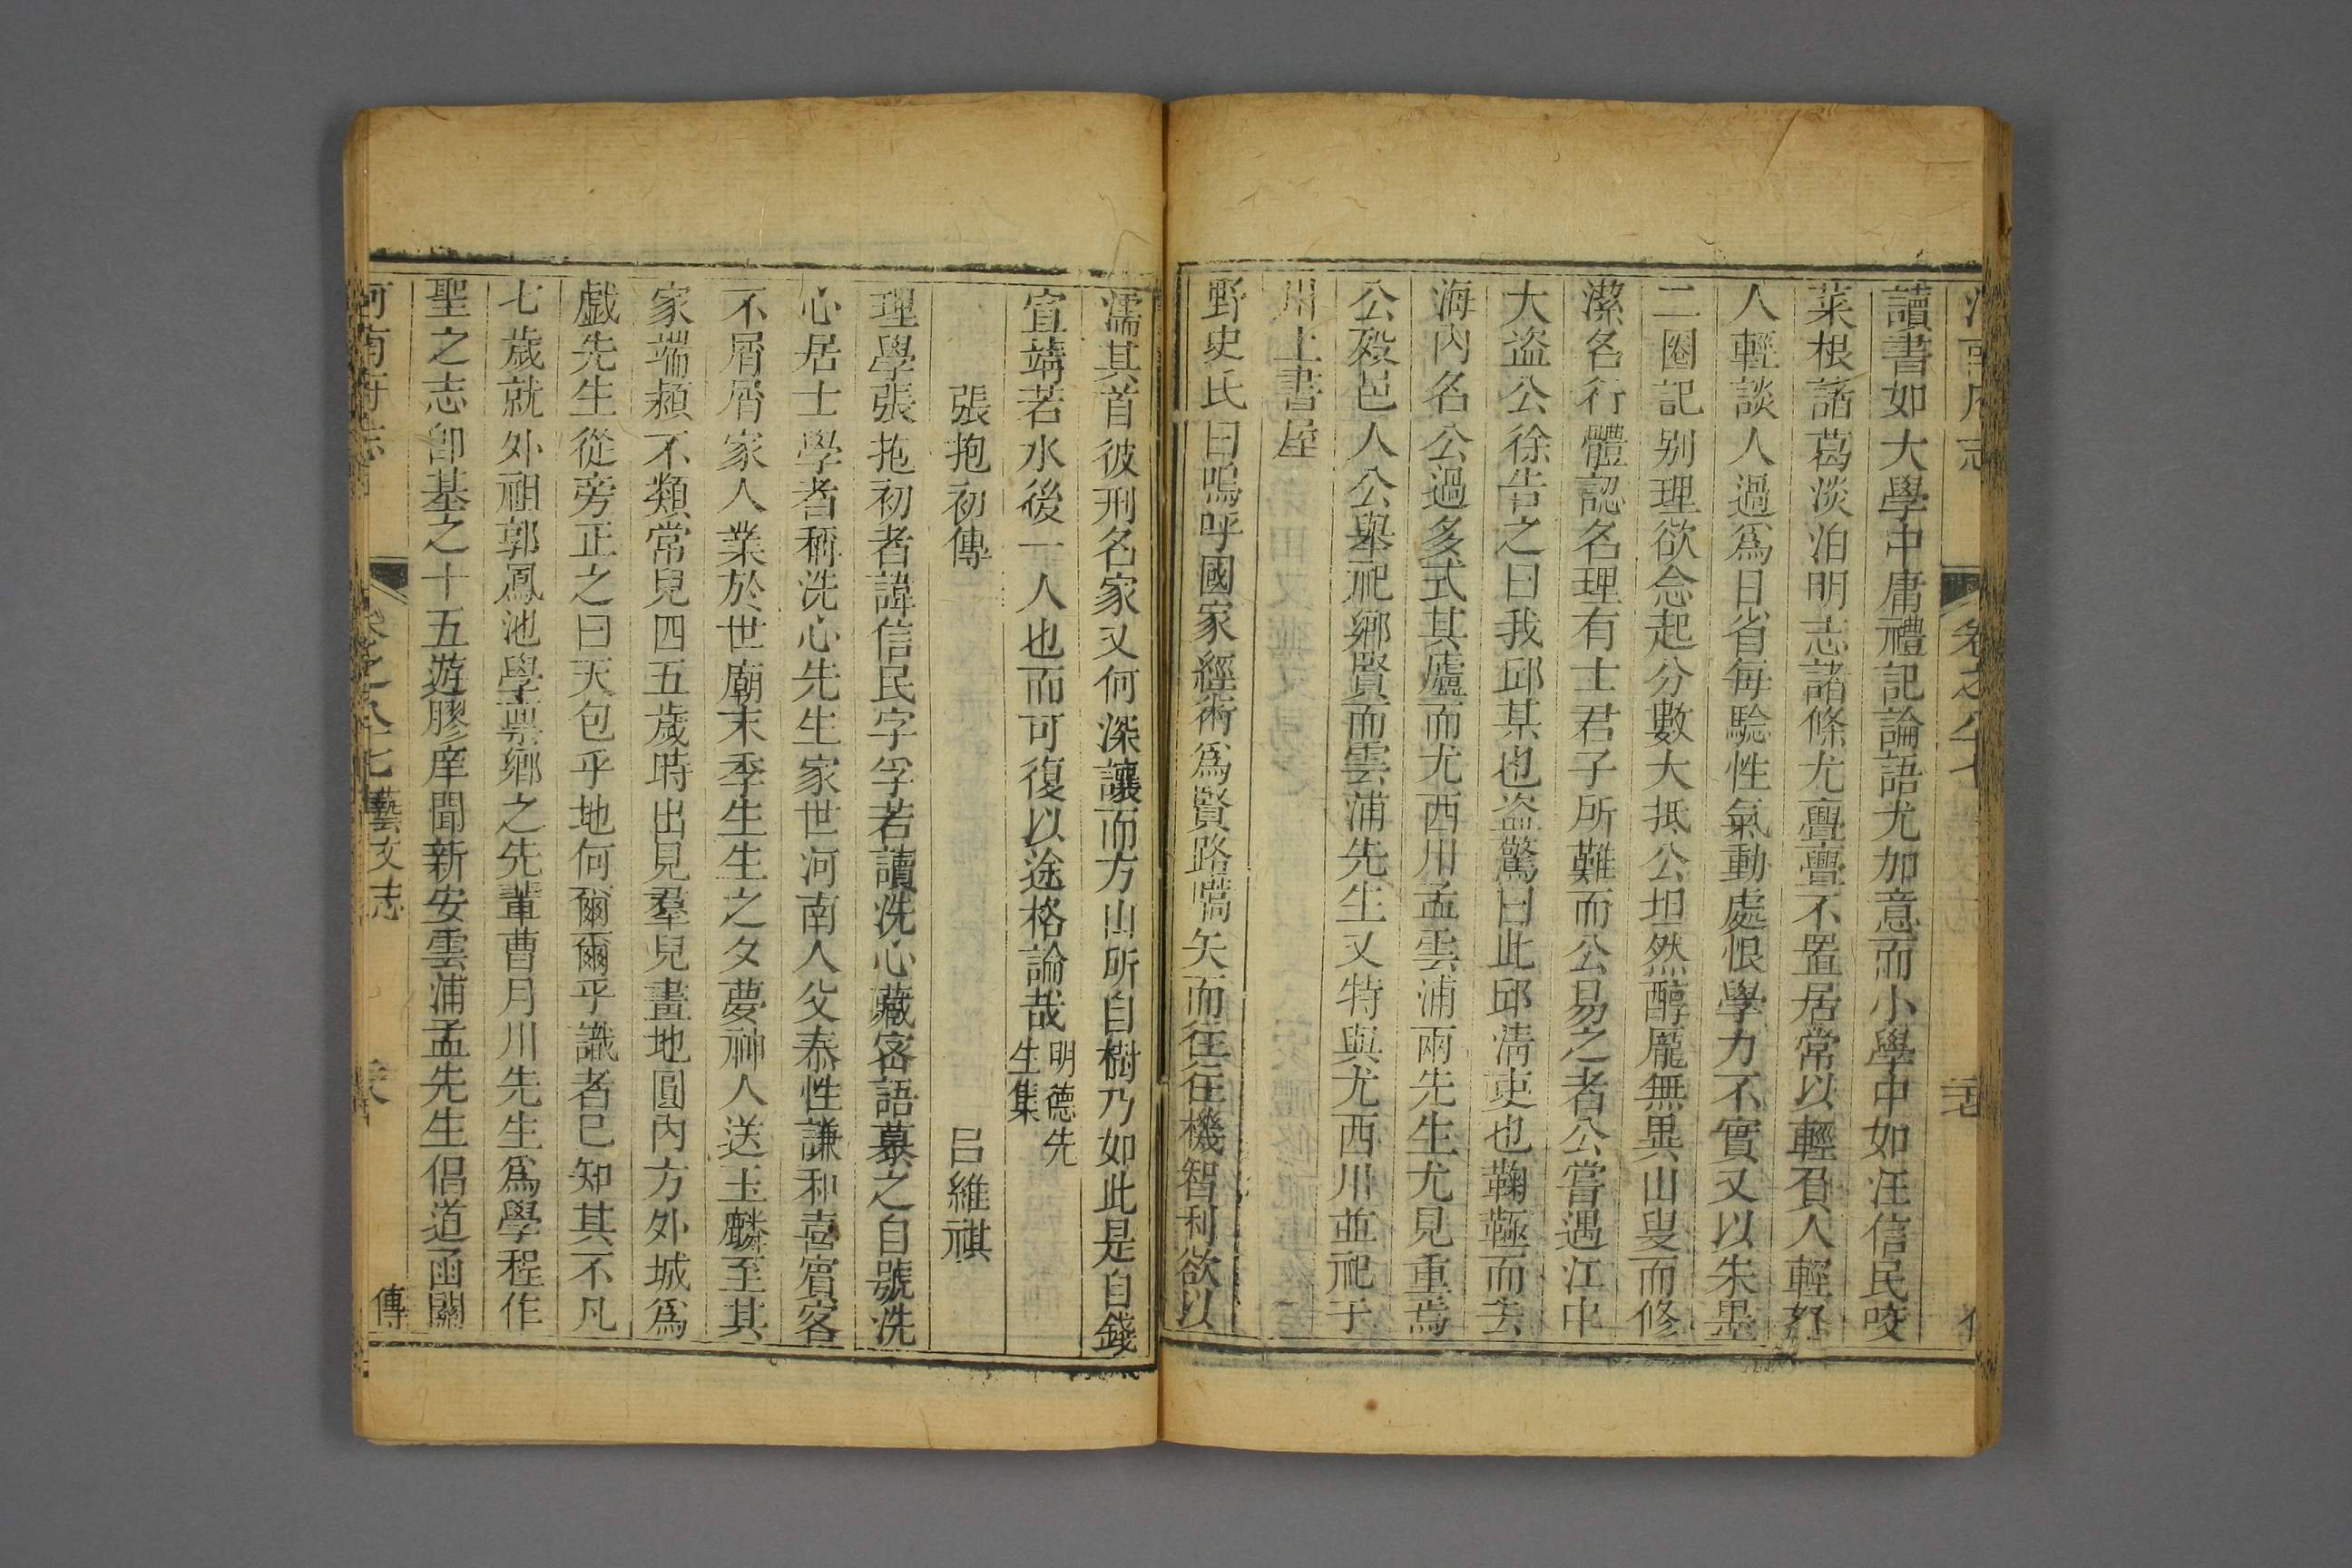 讀書如大學中庸禮記論語尤加意而小學中如汪信民咬
菜根諸葛淡泊明志諸條尤亹亹不置居常以輕召人輕怒
人輕談人過爲日省每驗性氣動處恨學力不實又以朱墨
二圈記别理欲念起分數大抵公坦然醇龎無異山叟而修
潔名行體認名理有士君子所難而公易之者公嘗遇江中
大盜公徐告之曰我邱某也盜驚曰此邱淸吏也鞠䩯而去
海內名公過多式其廬而尤西川孟雲浦兩先生尤見重焉
公殁邑人公舉祀鄉賢而雲浦先生又特與尤西川並祀于
川上書屋
野史氏曰嗚呼國家經術爲賢路嚆矢而往往機智利欲以
濡其首彼刑名家又何深讓而方山所自樹乃如此是自錢
宣靖若水後一人也而可復以途格論哉 明德先生集
張抱初傳 吕維祺
理學張抱初者諱信民字孚若讀洗心藏密語慕之自號洗
心居士學者稱洗心先生家世河南人父泰性謙和喜賓客
不屑屑家人業於世廟末季生生之夕夢神人送玉麟至其
家端頴不類常兒四五歲時出見羣兒畫地圓內方外城爲
戯先生從旁正之曰天包乎地何爾爾乎識者已知其不凡
七歲就外祖郭鳳池學稟鄉之先輩曹月川先生爲學程作
聖之志卽基之十五遊膠庠聞新安雲浦孟先生倡道函關
河南府志 卷之八七 藝文志 傳